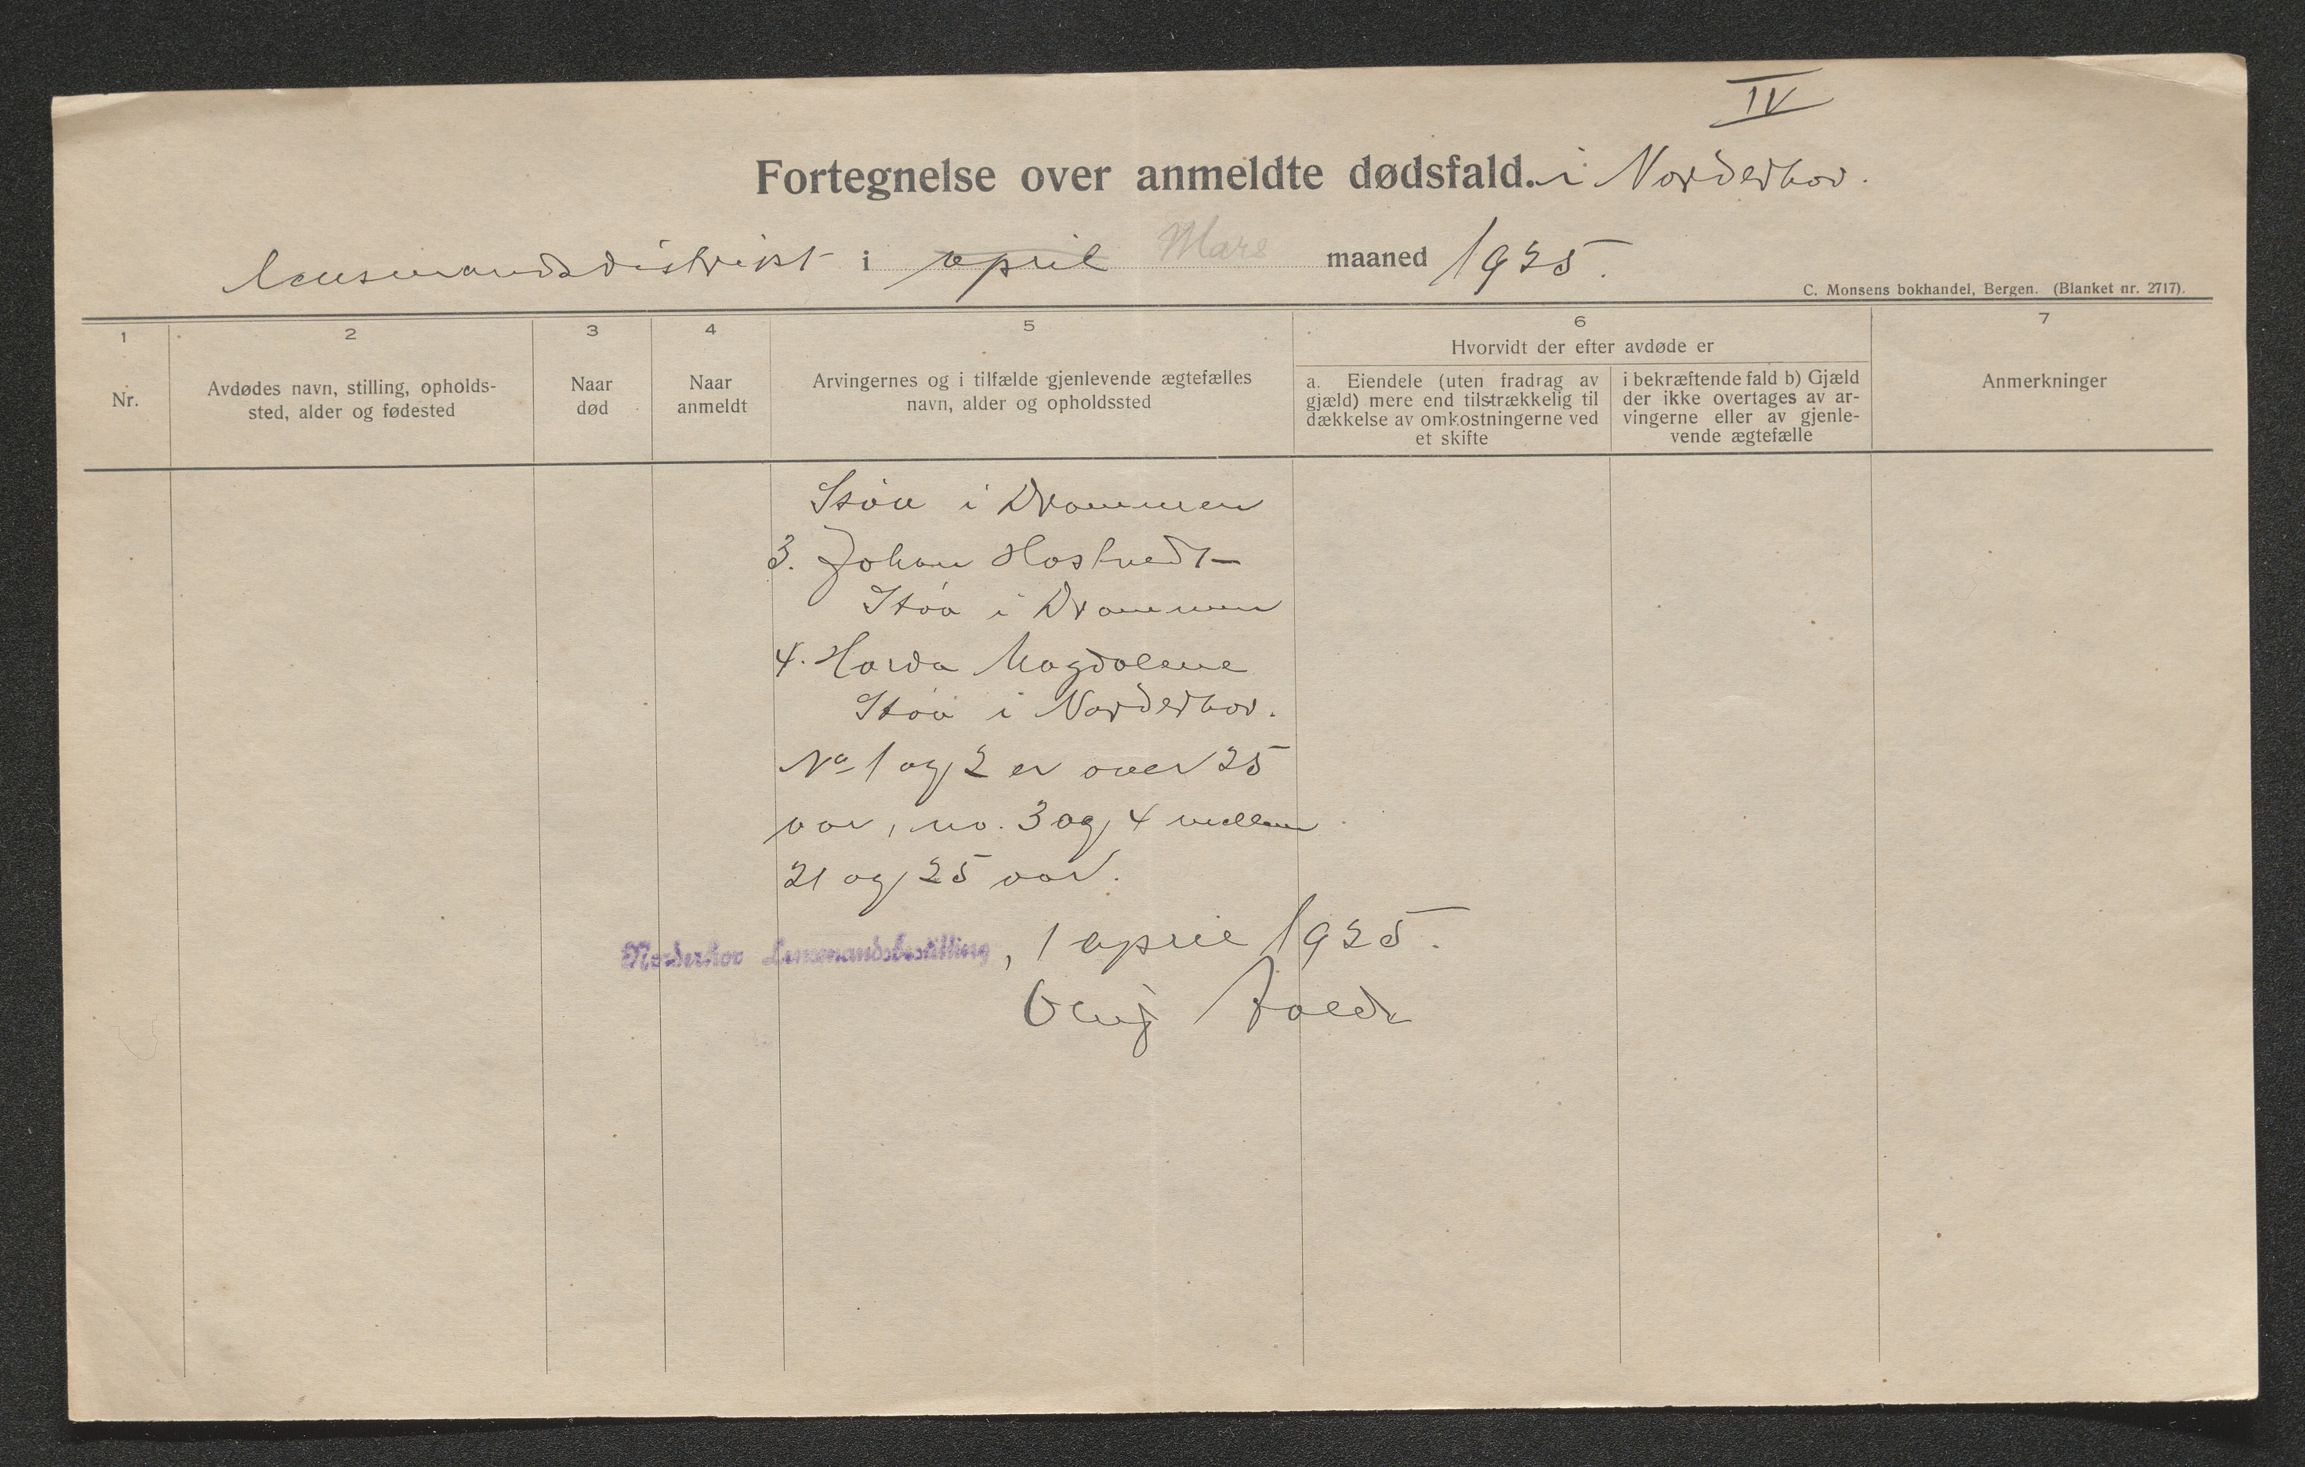 IV
Fortegnelse over anmeldte dødsfald. i Norderhov.
lensmandsdistrikt i april Mars maaned 1925.
C. Monsens bokhandel, Bergen. (Blanket nr. 2717).
1 2 3 4 5 6 7
Nr.
Avdødes navn, stilling, opholds-
sted, alder og fødested
Naar
død
Naar
anmeldt
Arvingernes og i tilfælde gjenlevende ægtefælles
navn, alder og opholdssted
Hvorvidt der efter avdøde er
a. Eiendele (uten fradrag av
gjæld) mere end tilstrækkelig til
dækkelse av omkostningerne ved
et skifte
i bekræftende fald b) Gjæld
der ikke overtages av ar-
vingerne eller av gjenle-
vende ægtefælle
Anmerkninger
Støa i Drammen
3. Johan Hostvedt
Støa i Drammen
4. Harda Magdalene
Støa i Norderhov.
No 1 og 2 er over 25
aar, no. 3 og 4 mellem
21 og 25 aar.
Norderhov Lensmandsbestilling, 1 april 1925.
Oluf